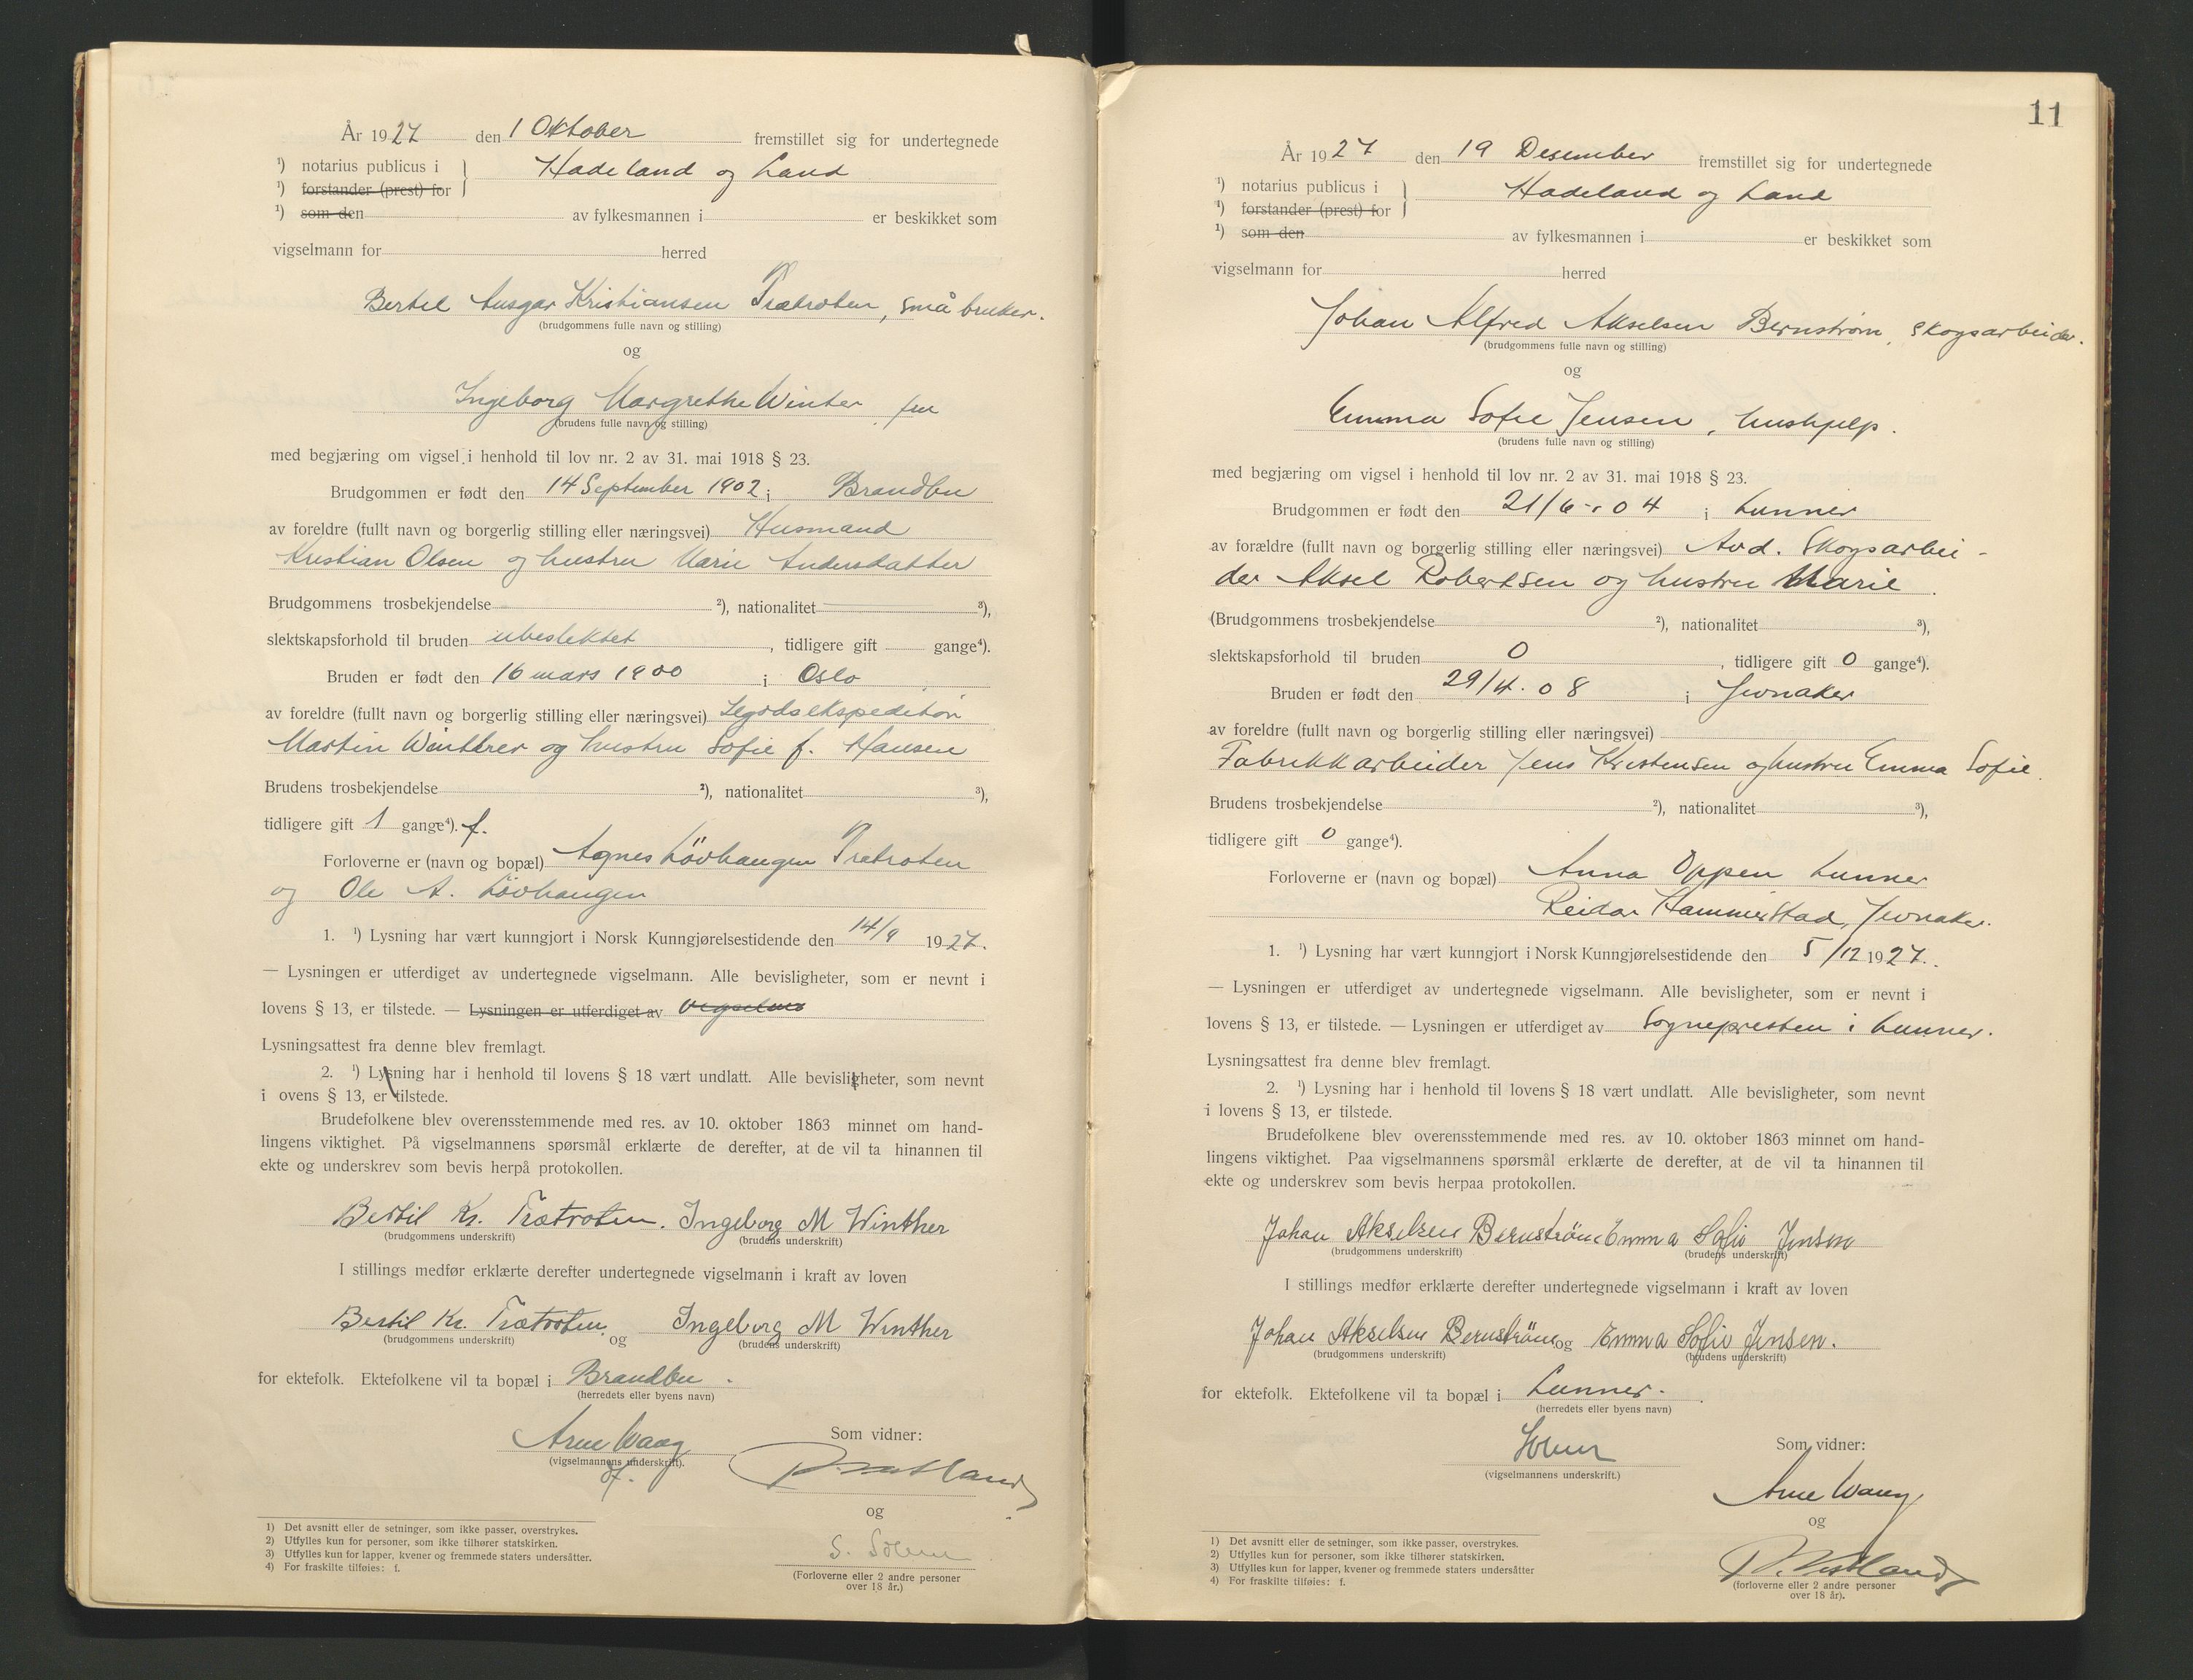 År 1927 den 1 Oktober fremstillet sig for undertegnede
¹) notarius publicus i Hadeland og Land
¹) forstander (prest) for
¹) som den av fylkesmannen i er beskikket som
vigselmann for herred
Bertel Ansgar Kristiansen Trætroten, småbruker.
(brudgommens fulle navn og stilling)
og
Ingeborg Margrethe Winter, fru
(brudens fulle navn og stilling)
med begjæring om vigsel i henhold til lov nr. 2 av 31. mai 1918 § 23.
Brudgommen er født den 14 September 1902 i Brandbu
av foreldre (fullt navn og borgerlig stilling eller næringsvei) Husmand
Kristian Olsen og hustru Marie Andersdatter
Brudgommens trosbekjendelse ²), nationalitet ³),
slektskapsforhold til bruden ubeslektet, tidligere gift gange⁴).
Bruden er født den 16 mars 1900 i Oslo
av foreldre (fullt navn og borgerlig stilling eller næringsvei) Ilgodsekspeditør
Martin Winther og hustru Sofie f. Hansen
Brudens trosbekjendelse ²), nationalitet ³),
tidligere gift 1 gange⁴). f.
Forloverne er (navn og bopæl) Agnes Lövhaugen Trætroten
og Ole A. Lövhaugen
1. ¹) Lysning har vært kunngjort i Norsk Kunngjørelsestidende den 14/9 1927.
— Lysningen er utferdiget av undertegnede vigselmann. Alle bevisligheter, som er nevnt i
lovens § 13, er tilstede. — Lysningen er utferdiget av vigselms
Lysningsattest fra denne blev fremlagt.
2. ¹) Lysning har i henhold til lovens § 18 vært undlatt. Alle bevisligheter, som nevnt
i ovens § 13, er tilstede.
Brudefolkene blev overensstemmende med res. av 10. oktober 1863 minnet om hand-
lingens viktighet. På vigselmannens spørsmål erklærte de derefter, at de vil ta hinannen til
ekte og underskrev som bevis herpå protokollen.
Bertil Kr. Trætroten. Ingeborg M Winther
(brudgommens underskrift) (brudens underskrift)
I stillings medfør erklærte derefter undertegnede vigselmann i kraft av loven
Bertil Kr. Trætroten. og Ingeborg M Winther
(brudgommens underskrift) (brudens underskrift)
for ektefolk. Ektefolkene vil ta bopæl i Brandbu.
(herredets eller byens navn)
Arne Waag
(vigselmannens underskrift).
Som vidner:
og
S. Sölum
(Forloverne eller 2 andre personer
over 18 år.)
1) Det avsnitt eller de setninger, som ikke passer, overstrykes.
2) Utfylles kun for personer, som ikke tilhører statskirken.
3) Utfylles kun for lapper, kvener og fremmede staters undersåtter.
4) For fraskilte tilføies: f.
11
År 1927 den 19 Desember fremstillet sig for undertegnede
¹) notarius publicus i Hadeland og Land
¹) forstander (prest) for
¹) som den av fylkesmannen i er beskikket som
vigselmann for herred
Johan Alfred Akselsen Bernstrøm, skogsarbeider.
(brudgommens fulle navn og stilling)
og
Emma Sofie Jensen, hushjelp.
(brudens fulle navn og stilling)
med begjæring om vigsel i henhold til lov nr. 2 av 31. mai 1918 § 23.
Brudgommen er født den 21/6-04 i Lunner
av forældre (fullt navn og borgerlig stilling eller næringsvei) Avd. Skogsarbei-
der Aksel Robertsen og hustru Marie.
(Brudgommens trosbekjendelse ²), nationalitet ³),
slektskapsforhold til bruden 0, tidligere gift 0 gange⁴).
Bruden er født den 29/4.08 i Jevnaker
av foreldre (fullt navn og borgerlig stilling eller næringsvei)
Fabrikkarbeider Jens Kristensen og hustru Emma Sofie.
Brudens trosbekjendelse ²), nationalitet ³),
tidligere gift 0 gange⁴).
Forloverne er (navn og bopæl) Anna Oppen Lunner
Reidar Hammerstad, Jevnaker.
1. ¹) Lysning har vært kunngjort i Norsk Kunngjørelsestidende den 5/12 1927.
— Lysningen er utferdiget av undertegnede vigselmann. Alle bevisligheter, som er nevnt i
lovens § 13, er tilstede. — Lysningen er utferdiget av Sognepresten i Lunner.
Lysningsattest fra denne blev fremlagt.
2. ¹) Lysning har i henhold til lovens § 18 vært undlatt. Alle bevisligheter, som nevnt
i lovens § 13, er tilstede.
Brudefolkene blev overensstemmende med res. av 10. oktober 1863 minnet om hand-
lingens viktighet. Paa vigselmannens spørsmål erklærte de derefter, at de vil ta hinannen til
ekte og underskrev som bevis herpaa protokollen.
Johan Akselsen Bernström Emma Sofie Jensen
(brudgommens underskrift) (brudens underskrift)
I stillings medfør erklærte derefter undertegnede vigselmann i kraft av loven
Johan Akselsen Bernström og Emma Sofie Jensen.
(brudgommens underskrift) (brudens underskrift)
for ektefolk. Ektefolkene vil ta bopæl i Lunner.
(herredets eller byens navn)
(vigselmannens underskrift.)
Som vidner:
Arne Waag
og
(forloverne eller 2 andre personer
over 18 år).
1) Det avsnitt eller de setninger, som ikke passer, overstrykes.
2) Utfylles kun for personer, som ikke tilhører statskirken.
3) Utfylles kun for lapper, kvener og fremmede staters undersåtter
4) For fraskilte tilføies: f.